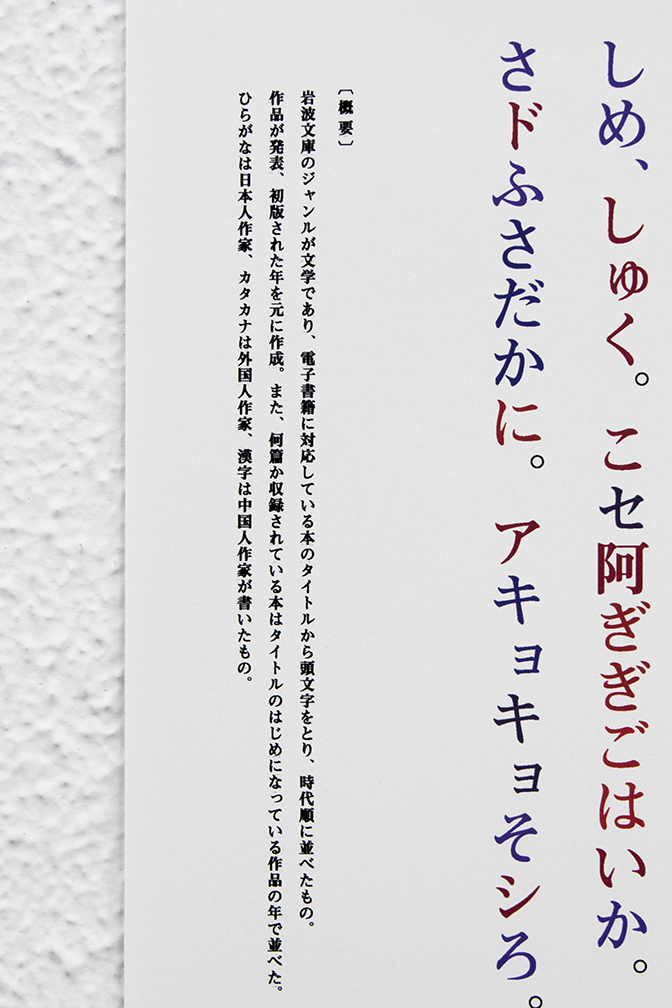 しめ、しゅく。こセ阿ぎぎごはいか。
さドふさだかに。アキョキョそシろ。
〔概要〕
岩波文庫のジャンルが文学であり、電子書籍に対応している本のタイトルから頭文字をとり、時代順に並べたもの。
作品が発表、初版された年を元に作成。また、何篇か収録されている本はタイトルのはじめになっている作品の年で並べた。
ひらがなは日本人作家、カタカナは外国人作家、漢字は中国人作家が書いたもの。